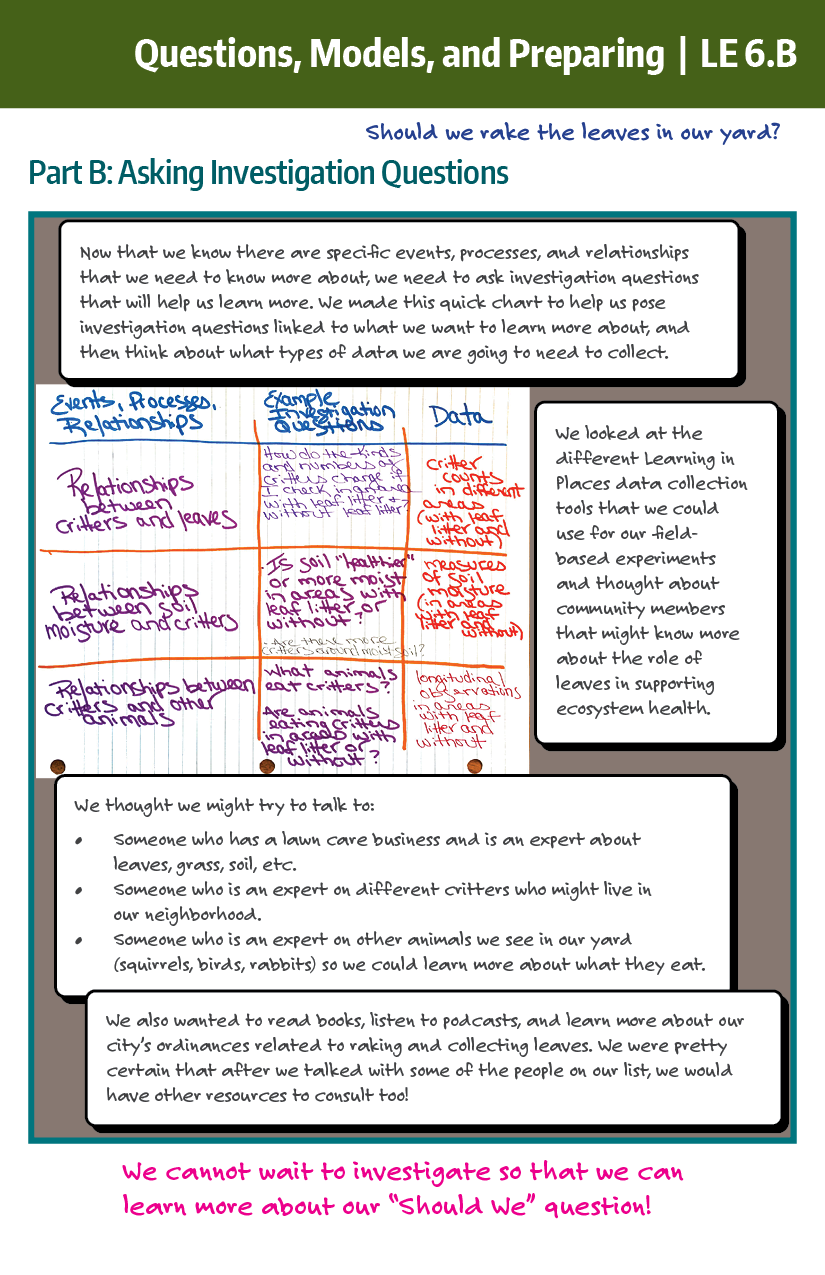 Questions, Models, and Preparing | LE 6.B
Should we rake the leaves in our yard?
Part B: Asking Investigation Questions
Now that we know there are specific events, processes, and relationships
that we need to know more about, we need to ask investigation questions
that will help us learn more. We made this quick chart to help us pose
investigation questions linked to what we want to learn more about, and
then think about what types of data we are going to need to collect.
Events, Processes,
Relationships
Example
Investigation
Questions
Data
Relationships
between
critters and leaves
How do the kinds
and numbers of
critters change if
I check in areas
with leaf litter +
without leaf litter?
critter
counts
in different
areas
(with leaf
litter and
without)
Relationships
between soil
moisture and critters
· Is soil "healthier"
or more moist
in areas with
leaf litter or
without?
· Are there more
critters around moist soil?
measures
of soil
moisture
(in areas
with leaf
litter and
without)
Relationships between
critters and other
animals
What animals
eat critters?
Are animals
eating critters
in areas with
leaf litter or
without?
longitudinal
observations
in areas
with leaf
litter and
without
We looked at the
different Learning in
Places data collection
tools that we could
use for our field-
based experiments
and thought about
community members
that might know more
about the role of
leaves in supporting
ecosystem health.
We thought we might try to talk to:
• Someone who has a lawn care business and is an expert about
leaves, grass, soil, etc.
• Someone who is an expert on different critters who might live in
our neighborhood.
• Someone who is an expert on other animals we see in our yard
(squirrels, birds, rabbits) so we could learn more about what they eat.
We also wanted to read books, listen to podcasts, and learn more about our
city's ordinances related to raking and collecting leaves. We were pretty
certain that after we talked with some of the people on our list, we would
have other resources to consult too!
We cannot wait to investigate so that we can
learn more about our "Should We" question!